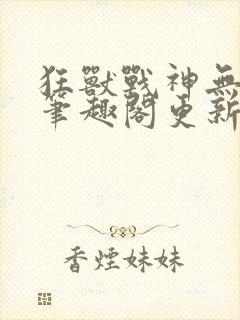 狂獸戰神無
筆趣閣更新
香煙妹妹